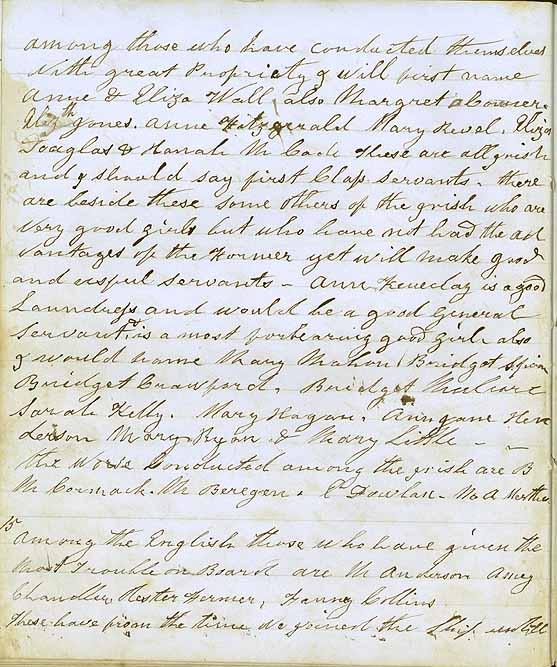 among those who have conducted themselves
with great Propriety I will first name
Anne & Eliza Wall, also Margret Conner.
Elizth Jones. Anne Fitzgerrald Mary Revel. Eliza
Douglas & Hanah Mc Cade these are all Irish
and I should say first Class servants. there
are beside these some others of the Irish who are
very good girls but who have not had the ad
vantages of the former yet will make good
and usful servants - Ann is a good
Laundress and would be a good general
Servant & is a most forbearing good girl. also
I would name Mary Mahon, Bridget
Bridget Crawford, Bridget
Sarah Kelly. Mary Hagan. Ann Jane Hen
derson Mary Ryan & Mary Little -
the worse Conducted among the Irish are B
Mc Cormack. M Beregen. C Dowlan. M A
15
Among the English those who have given the
most Trouble on Board are M Anderson Amey
Chandler Hester Former, Fanny Collins
these have from the time we joined the Ship until